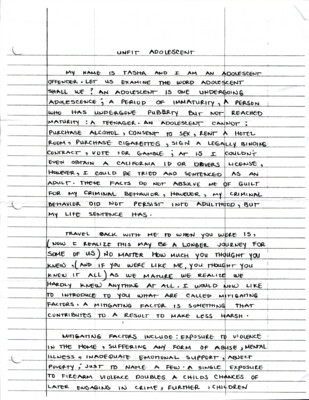 UNFIT ADOLESCENT
MY NAME IS TASHA AND I AM AN ADOLESCENT
OFFENDER. LET US EXAMINE THE WORD ADOLESCENT
SHALL WE? AN ADOLESCENT IS ONE UNDERGOING
ADOLESCENCE; A PERIOD OF IMMATURITY, A PERSON
WHO HAS UNDERGONE PUBERTY BUT NOT REACHED
MATURITY: A TEENAGER. AN ADOLESCENT CANNOT:
PURCHASE ALCOHOL, CONSENT TO SEX, RENT A HOTEL
ROOM, PURCHASE CIGARETTES, SIGN A LEGALLY BINDING
CONTRACT, VOTE OR GAMBLE; AT 15 I COULDN'T
EVEN OBTAIN A CALIFORNIA ID OR DRIVERS LICENSE,
HOWEVER, I COULD BE TRIED AND SENTENCED AS AN
ADULT. THESE FACTS DO NOT ABSOLVE ME OF GUILT
FOR MY CRIMINAL BEHAVIOR, HOWEVER, MY CRIMINAL
BEHAVIOR DID NOT PERSIST INTO ADULTHOOD, BUT
MY LIFE SENTENCE HAS.
TRAVEL BACK WITH ME TO WHEN YOU WERE 15.
(NOW I REALIZE THIS MAY BE A LONGER JOURNEY FOR
SOME OF US) NO MATTER HOW MUCH YOU THOUGHT YOU
KNEW, (AND IF YOU WERE LIKE ME, YOU THOUGHT YOU
KNEW IT ALL) AS WE MATURE WE REALIZE WE
HARDLY KNEW ANYTHING AT ALL. I WOULD NOW LIKE
TO INTRODUCE TO YOU WHAT ARE CALLED MITIGATING
FACTORS. A MITIGATING FACTOR IS SOMETHING THAT
CONTRIBUTES TO A RESULT TO MAKE LESS HARSH.
MITIGATING FACTORS INCLUDE: EXPOSURE TO VIOLENCE
IN THE HOME, SUFFERING ANY FORM OF ABUSE, MENTAL
ILLNESS, INADEQUATE EMOTIONAL SUPPORT, ABJECT
POVERTY; JUST TO NAME A FEW. A SINGLE EXPOSURE
TO FIREARM VIOLENCE DOUBLES A CHILDS CHANCES OF
LATER ENGAGING IN CRIME, FURTHER, CHILDREN